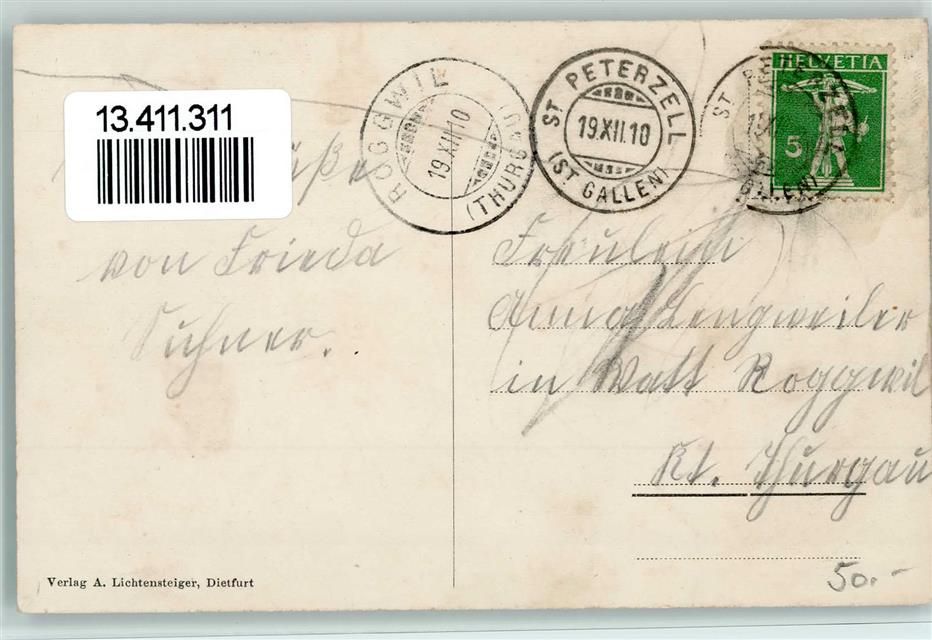 13.411.311
ROGGWIL
19.XII.10
(THURGAU)
ST PETERZELL
19.XII.10
(ST GALLEN)
ST PETERZELL
GALLEN)
HELVETIA
5
von Frieda
Suhner.
Fräulein
Anna Lengweiler
in Watt Roggwil
Kt. Thurgau
Verlag A. Lichtensteiger, Dietfurt
50.-